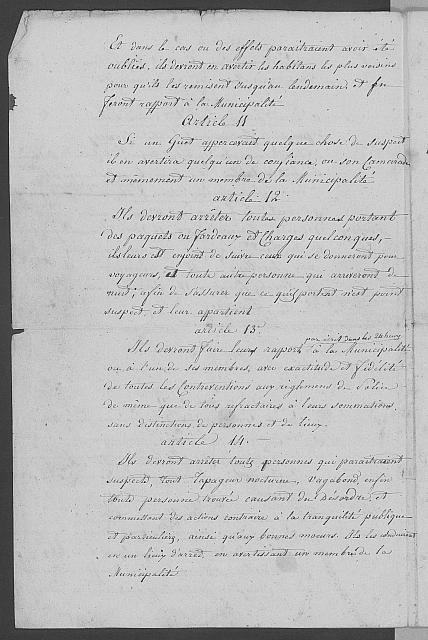 Et dans le cas ou des effets paraitraient avoir été
oubliés, ils devront en avertir les habitans les plus voisins
pour qu'ils les remisent jusqu'au lendemain, et en
feront rapport à la Municipalité
Article 11
Si un Guet appercevait quelque chose de suspect
il en avertira quelqu'un de confiance, ou son camarade
et même un membre de la Municipalité
article 12
Ils devront arrêter toutes personnes portant
des paquets ou fardeaux et Charges quelconques,
ils leurs est enjoint de suivre ceux qui se donneront pour
voyageurs, et toute autre personne qui arriveront de
nuit; afin de s'assurer que ce qu'ils portent n'est point
suspect et leur appartient
article 13
par écrit dans les 24 heures
Ils devront faire leurs rapport à la Municipalité
ou à l'un de ses membres, avec exactitude et fidélité
de toutes les Contreventions aux réglemens de Police
de même que de tous refractaires à leurs sommations,
sans distinctions de personnes et de lieux.
article 14.
Ils devront arrêter toute personnes qui paraitraient
suspects, tout tapageur nocturne, vagabond, enfin
toute personne trouvée causant du désordre, et
commettant des actions contraire à la tranquilité publique
et particulière, ainsi qu'aux bonnes moeurs. Ils les conduiront
en un lieux d'arrêt, en avertissant un membre de la
Municipalité